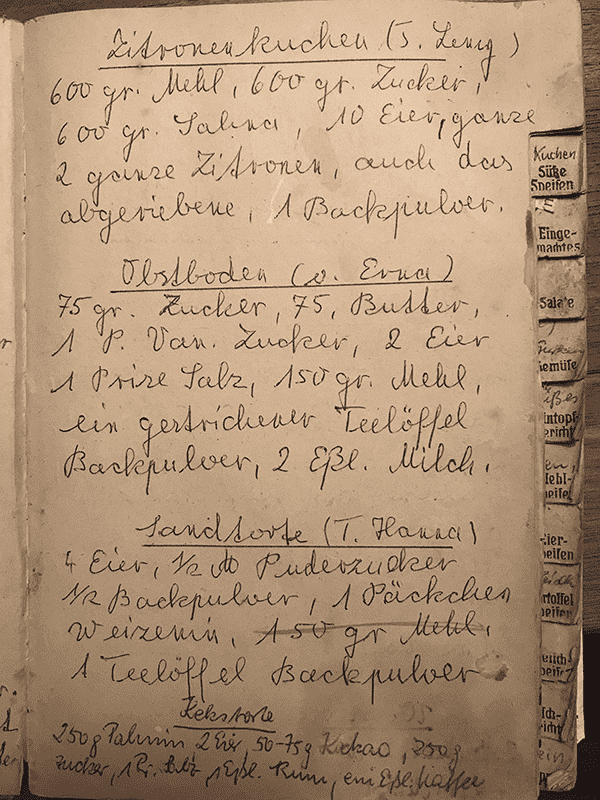 Zitronenkuchen (T. Leny)
600 gr. Mehl, 600 gr. Zucker,
600 gr. Sahna, 10 Eier, ganze
2 ganze Zitronen, auch das
abgeriebene, 1 Backpulver.
Obstboden (v. Erna)
75 gr. Zucker, 75, Butter,
1 P. Van. Zucker, 2 Eier
1 Prize Salz, 150 gr. Mehl,
ein gestrichener Teelöffel
Backpulver, 2 Eßl. Milch.
Sandtorte (T. Hanna)
4 Eier, 1/2 Puderzucker
1/2 Backpulver, 1 Päckchen
Weizenin, 150 gr Mehl.
1 Teelöffel Backpulver
Kekstorte
250g Palmin 2 Eier, 50-75g Kakao, 250g
Zucker, 1 Pr. Salz, 1 Eßl. Rum, ein Eßl. Kaffee
Kuchen
Süße
Speisen
Einge-
machtes
Salate
Gemüse
Eintopf
ericht
Mehl-
peisen
Eier-
peisen
artoffel
peisen
leisch